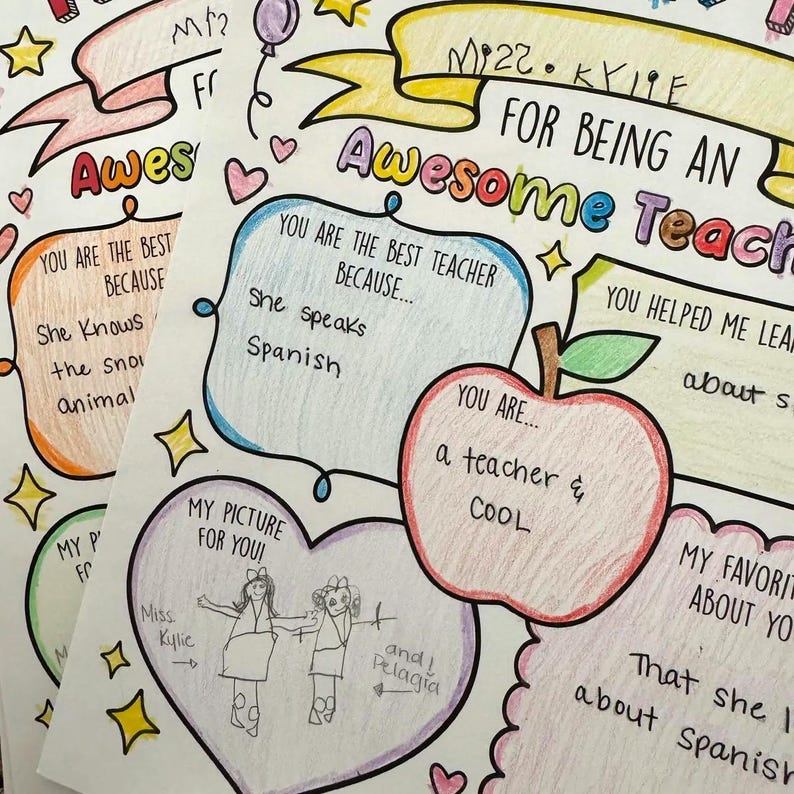 MISS. KYLIE
FOR BEING AN
Awesome Teach
YOU ARE THE BEST TEACHER
BECAUSE...
She speaks
Spanish
YOU HELPED ME LEA
about s
YOU ARE...
a teacher &
COOL
MY PICTURE
FOR YOU!
Miss.
Kylie
and!
Pelagia
MY FAVORIT
ABOUT YO
That she l
about Spanish
Awes
YOU ARE THE BEST
BECAUSE
She Knows
the sno
animal
MY P
FO